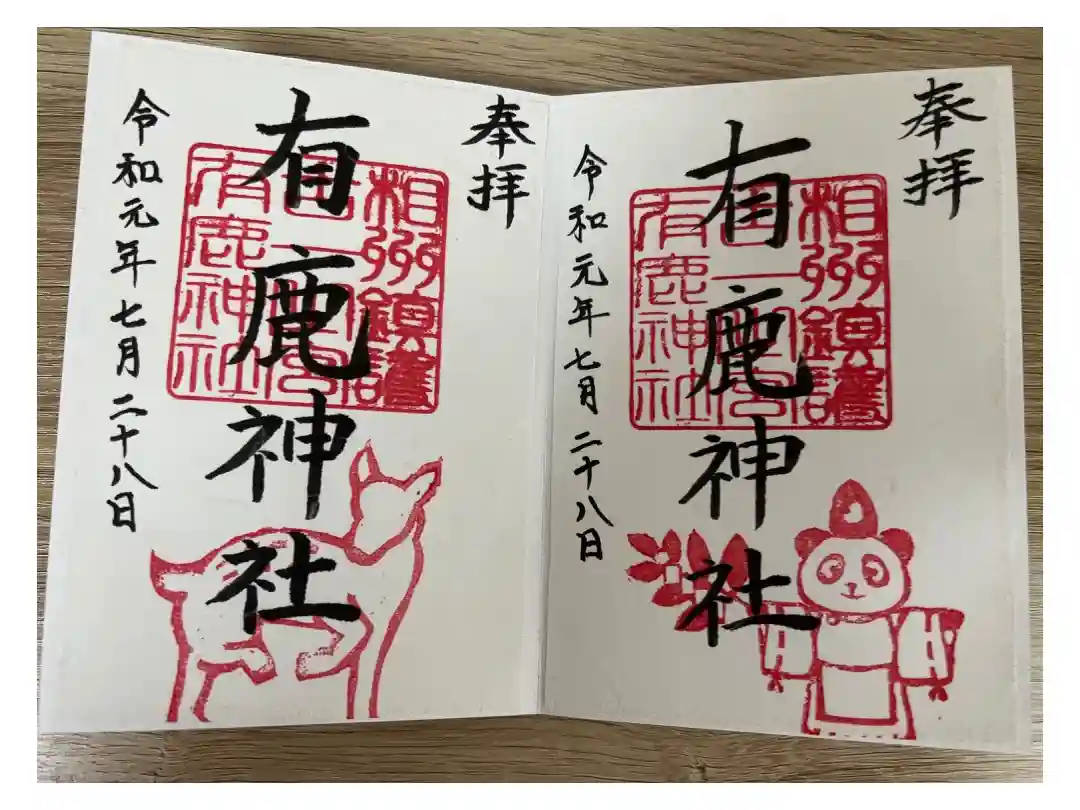 奉拝
有鹿神社
相州鎮護
有鹿神社
令和元年七月二十八日
奉拝
有鹿神社
相州鎮護
有鹿神社
令和元年七月二十八日